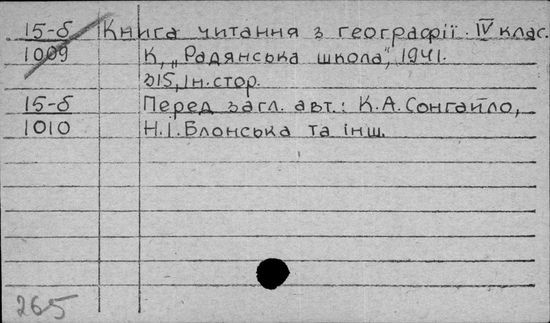 15-б Книга читання з географії. IV клас.
1009 К, „Радянська школа", 1941.
315, Ін. стор.
15-б Перед загл. авт.: К.А. Сонгайло,
1010 Н.І. Блонська та інш.
265